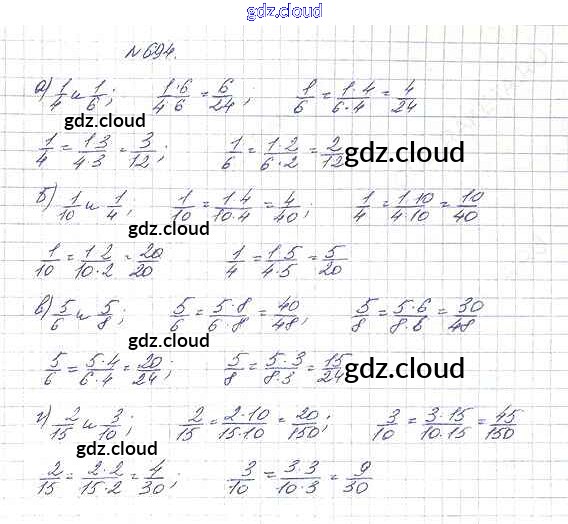 gdz.cloud
gdz.cloud
№ 694.
а) 1/4 и 1/6; 1·6/4·6 = 6/24; 1/6 = 1·4/6·4 = 4/24
gdz.cloud
1/4 = 1·3/4·3 = 3/12; 1/6 = 1·2/6·2 = 2/12
gdz.cloud
б) 1/10 и 1/4; 1/10 = 1·4/10·4 = 4/40; 1/4 = 1·10/4·10 = 10/40
gdz.cloud
1/10 = 1·2/10·2 = 20/20 1/4 = 1·5/4·5 = 5/20
в) 5/6 и 5/8; 5/6 = 5·8/6·8 = 40/48; 5/8 = 5·6/8·6 = 30/48
gdz.cloud
5/6 = 5·4/6·4 = 20/24; 5/8 = 5·3/8·3 = 15/24
gdz.cloud
г) 2/15 и 3/10; 2/15 = 2·10/15·10 = 20/150; 3/10 = 3·15/10·15 = 45/150
gdz.cloud
2/15 = 2·2/15·2 = 4/30; 3/10 = 3·3/10·3 = 9/30